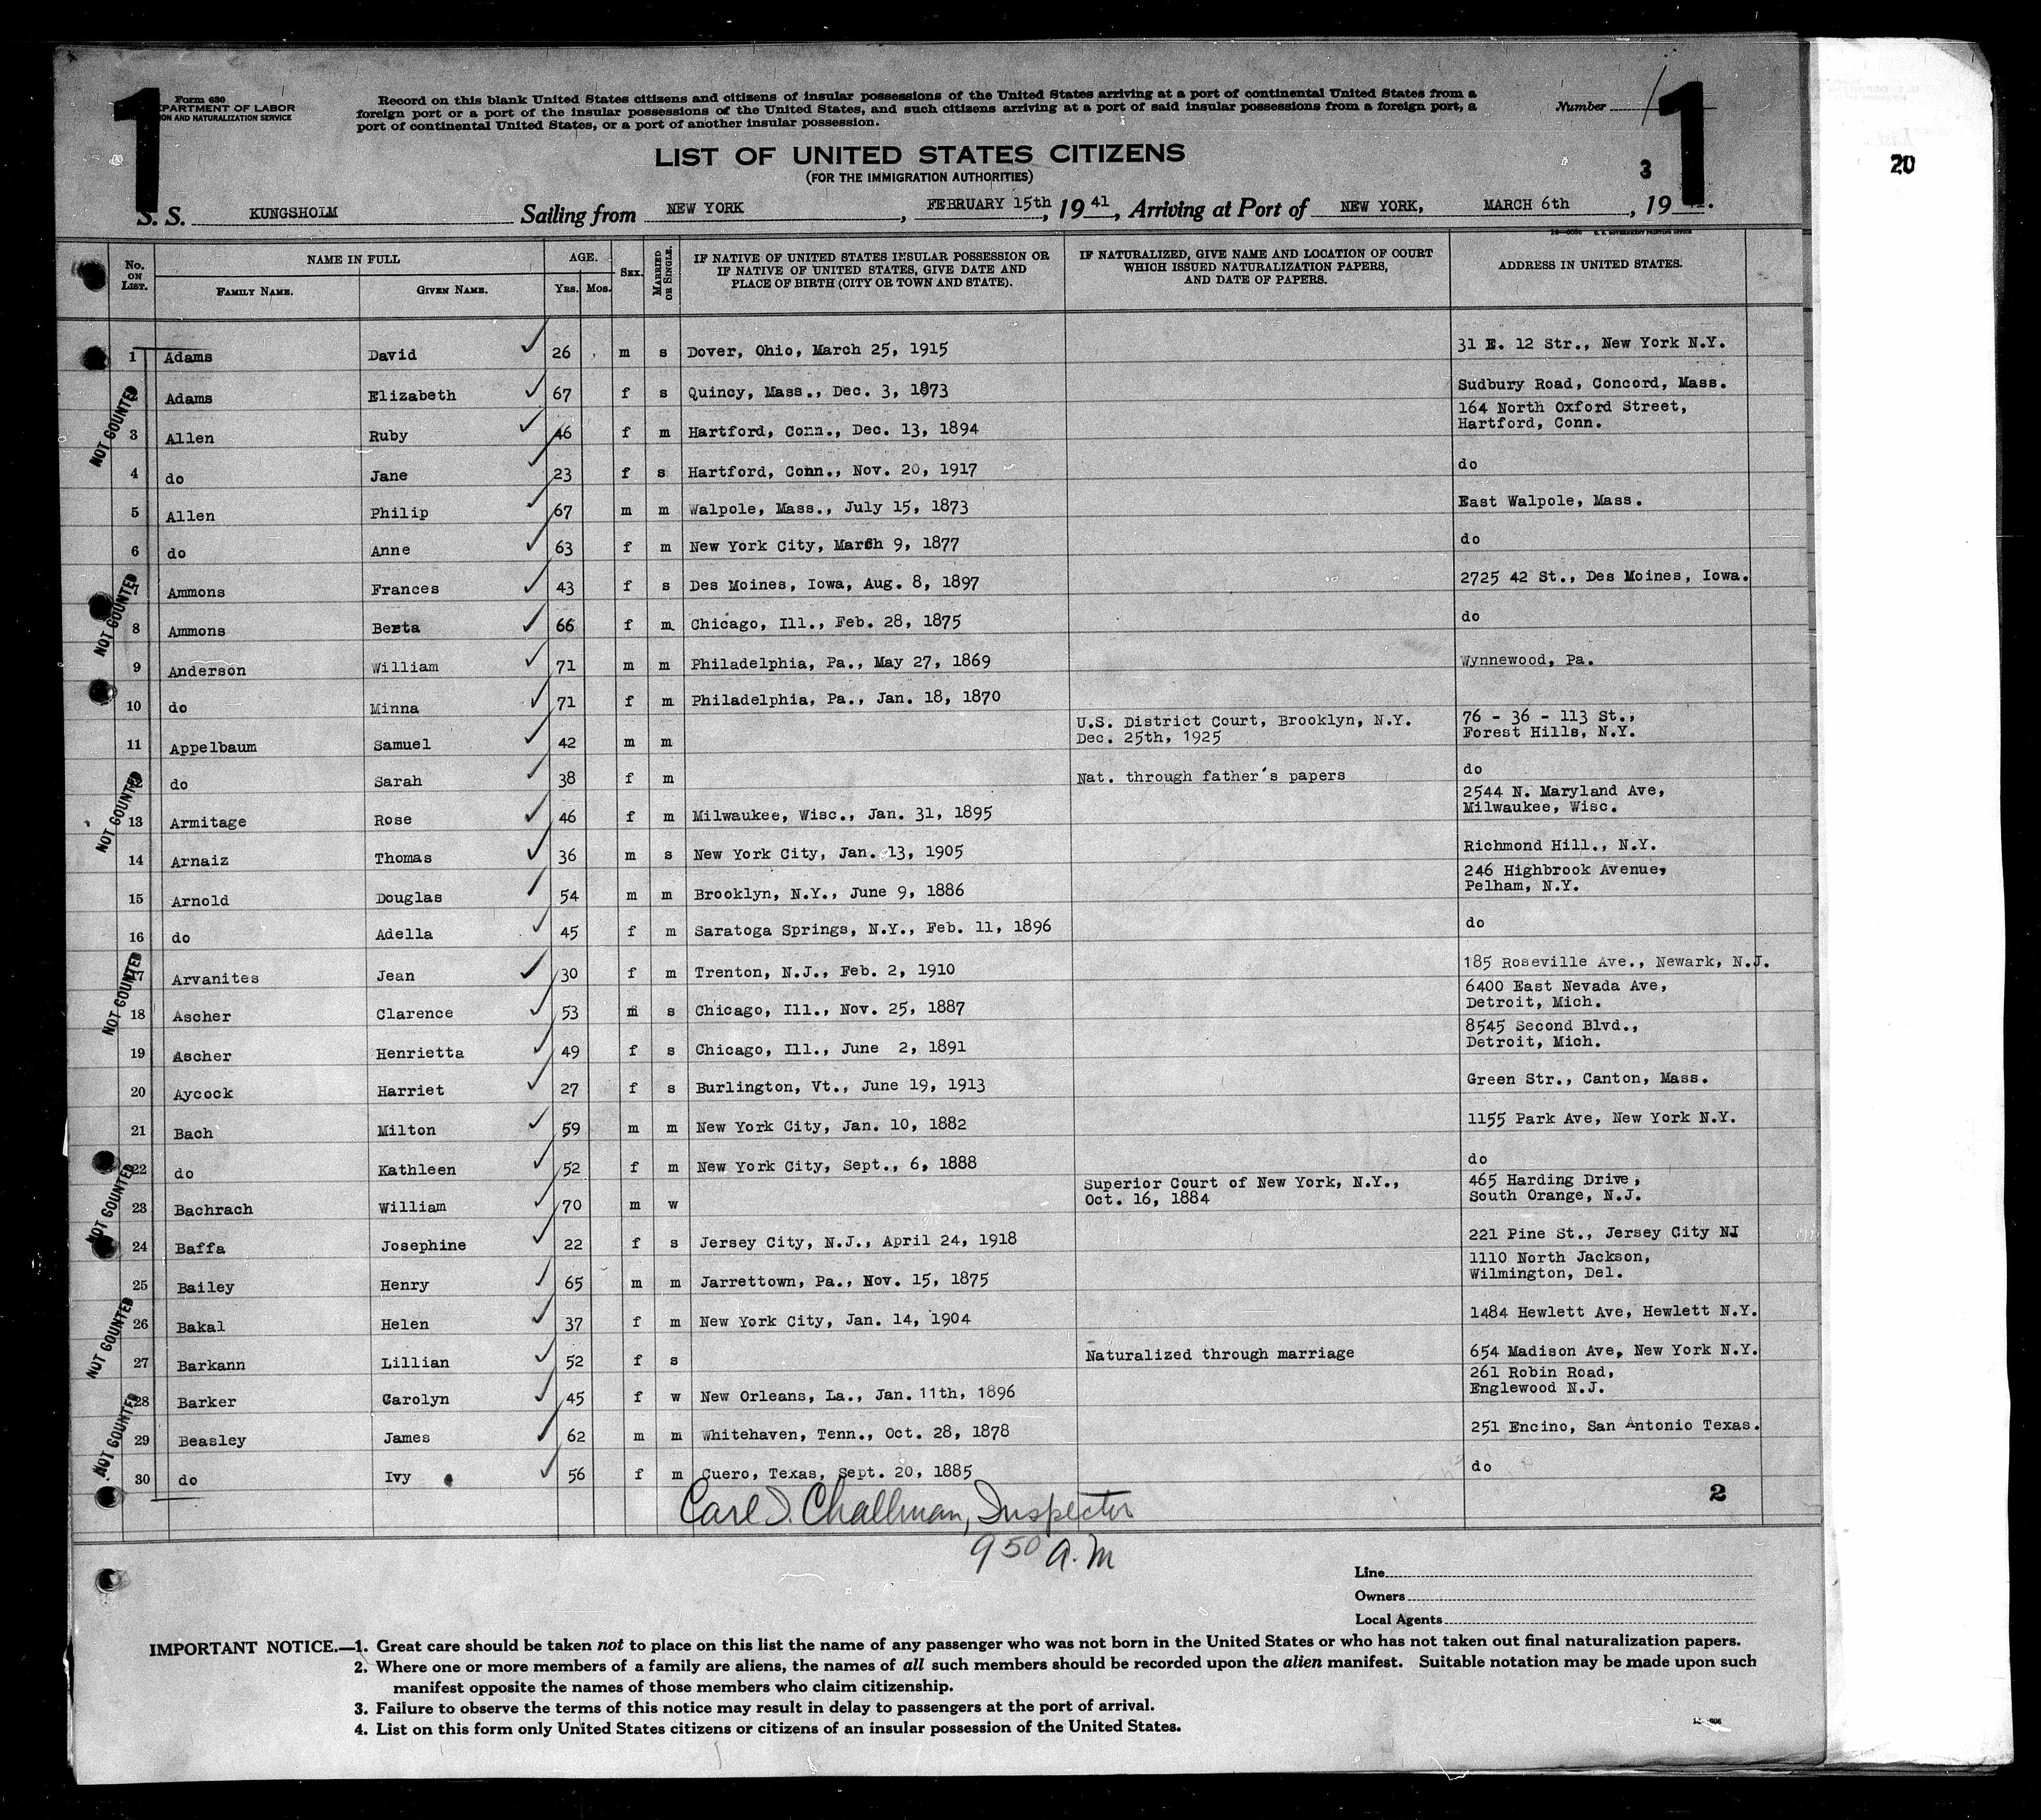 1
1
Form 630
PARTMENT OF LABOR
ION AND NATURALIZATION SERVICE
Record on this blank United States citizens and citizens of insular possessions of the United States arriving at a port of continental United States from a
foreign port or a port of the insular possessions of the United States, and such citizens arriving at a port of said insular possessions from a foreign port, a
port of continental United States, or a port of another insular possession.
Number
20
LIST OF UNITED STATES CITIZENS
(FOR THE IMMIGRATION AUTHORITIES)
3
S. S. KUNGSHOLM Sailing from NEW YORK, FEBRUARY 15th, 19 41, Arriving at Port of NEW YORK, MARCH 6th, 19
No. ON LIST. NAME IN FULL FAMILY NAME. GIVEN NAME. AGE. YRS. MOS. SEX. MARRIED OR SINGLE. IF NATIVE OF UNITED STATES INSULAR POSSESSION OR IF NATIVE OF UNITED STATES, GIVE DATE AND PLACE OF BIRTH (CITY OR TOWN AND STATE). IF NATURALIZED, GIVE NAME AND LOCATION OF COURT WHICH ISSUED NATURALIZATION PAPERS, AND DATE OF PAPERS. ADDRESS IN UNITED STATES.
1 Adams David 26 m s Dover, Ohio, March 25, 1915 31 E. 12 Str., New York N.Y.
2 Adams Elizabeth 67 f s Quincy, Mass., Dec. 3, 1873 Sudbury Road, Concord, Mass.
NOT COUNTED
3 Allen Ruby 46 f m Hartford, Conn., Dec. 13, 1894 164 North Oxford Street, Hartford, Conn.
4 do Jane 23 f s Hartford, Conn., Nov. 20, 1917 do
5 Allen Philip 67 m m Walpole, Mass., July 15, 1873 East Walpole, Mass.
6 do Anne 63 f m New York City, March 9, 1877 do
7 Ammons Frances 43 f s Des Moines, Iowa, Aug. 8, 1897 2725 42 St., Des Moines, Iowa.
NOT COUNTED
8 Ammons Berta 66 f m Chicago, Ill., Feb. 28, 1875 do
9 Anderson William 71 m m Philadelphia, Pa., May 27, 1869 Wynnewood, Pa.
10 do Minna 71 f m Philadelphia, Pa., Jan. 18, 1870
11 Appelbaum Samuel 42 m m U.S. District Court, Brooklyn, N.Y. Dec. 25th, 1925 76 - 36 - 113 St., Forest Hills, N.Y.
12 do Sarah 38 f m Nat. through father's papers do
NOT COUNTED
13 Armitage Rose 46 f m Milwaukee, Wisc., Jan. 31, 1895 2544 N. Maryland Ave, Milwaukee, Wisc.
14 Arnaiz Thomas 36 m s New York City, Jan. 13, 1905 Richmond Hill., N.Y.
15 Arnold Douglas 54 m m Brooklyn, N.Y., June 9, 1886 246 Highbrook Avenue, Pelham, N.Y.
16 do Adella 45 f m Saratoga Springs, N.Y., Feb. 11, 1896 do
17 Arvanites Jean 30 f m Trenton, N.J., Feb. 2, 1910 185 Roseville Ave., Newark, N.J.
NOT COUNTED
18 Ascher Clarence 53 m s Chicago, Ill., Nov. 25, 1887 6400 East Nevada Ave, Detroit, Mich.
19 Ascher Henrietta 49 f s Chicago, Ill., June 2, 1891 8545 Second Blvd., Detroit, Mich.
20 Aycock Harriet 27 f s Burlington, Vt., June 19, 1913 Green Str., Canton, Mass.
21 Bach Milton 59 m m New York City, Jan. 10, 1882 1155 Park Ave, New York N.Y.
22 do Kathleen 52 f m New York City, Sept., 6, 1888 do
NOT COUNTED
23 Bachrach William 70 m w Superior Court of New York, N.Y., Oct. 16, 1884 465 Harding Drive, South Orange, N.J.
24 Baffa Josephine 22 f s Jersey City, N.J., April 24, 1918 221 Pine St., Jersey City NJ
25 Bailey Henry 65 m m Jarrettown, Pa., Nov. 15, 1875 1110 North Jackson, Wilmington, Del.
26 Bakal Helen 37 f m New York City, Jan. 14, 1904 1484 Hewlett Ave, Hewlett N.Y.
NOT COUNTED
27 Barkann Lillian 52 f s Naturalized through marriage 654 Madison Ave, New York N.Y.
28 Barker Carolyn 45 f w New Orleans, La., Jan. 11th, 1896 261 Robin Road, Englewood N.J.
NOT COUNTED
29 Beasley James 62 m m Whitehaven, Tenn., Oct. 28, 1878 251 Encino, San Antonio Texas.
30 do Ivy 56 f m Cuero, Texas, Sept. 20, 1885 do
2
Carl D. Challman, Inspector
9 50 A.M
Line
Owners
Local Agents
IMPORTANT NOTICE.—1. Great care should be taken not to place on this list the name of any passenger who was not born in the United States or who has not taken out final naturalization papers.
2. Where one or more members of a family are aliens, the names of all such members should be recorded upon the alien manifest. Suitable notation may be made upon such
manifest opposite the names of those members who claim citizenship.
3. Failure to observe the terms of this notice may result in delay to passengers at the port of arrival.
4. List on this form only United States citizens or citizens of an insular possession of the United States.